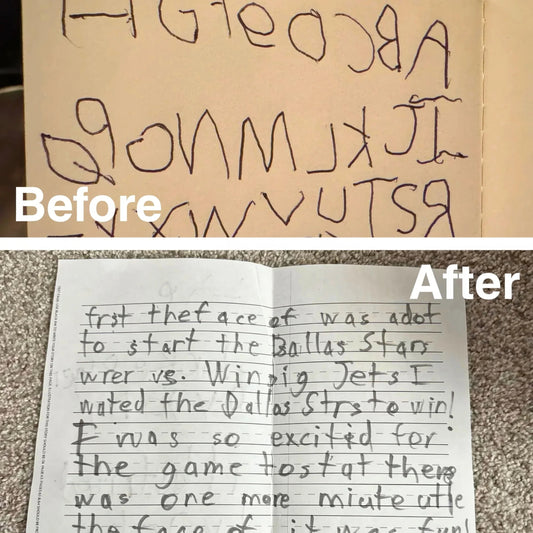 A B C D e f G H
I J K L M N O P Q
Before
R S T U V W X Y
After
frst the face of was adot
to start the Ballas Stars
wrer vs. Winpig Jets I
wated the Dallas Strs to win!
I was so excited for
the game to stat there
was one more miute utle
the face of it was fun!